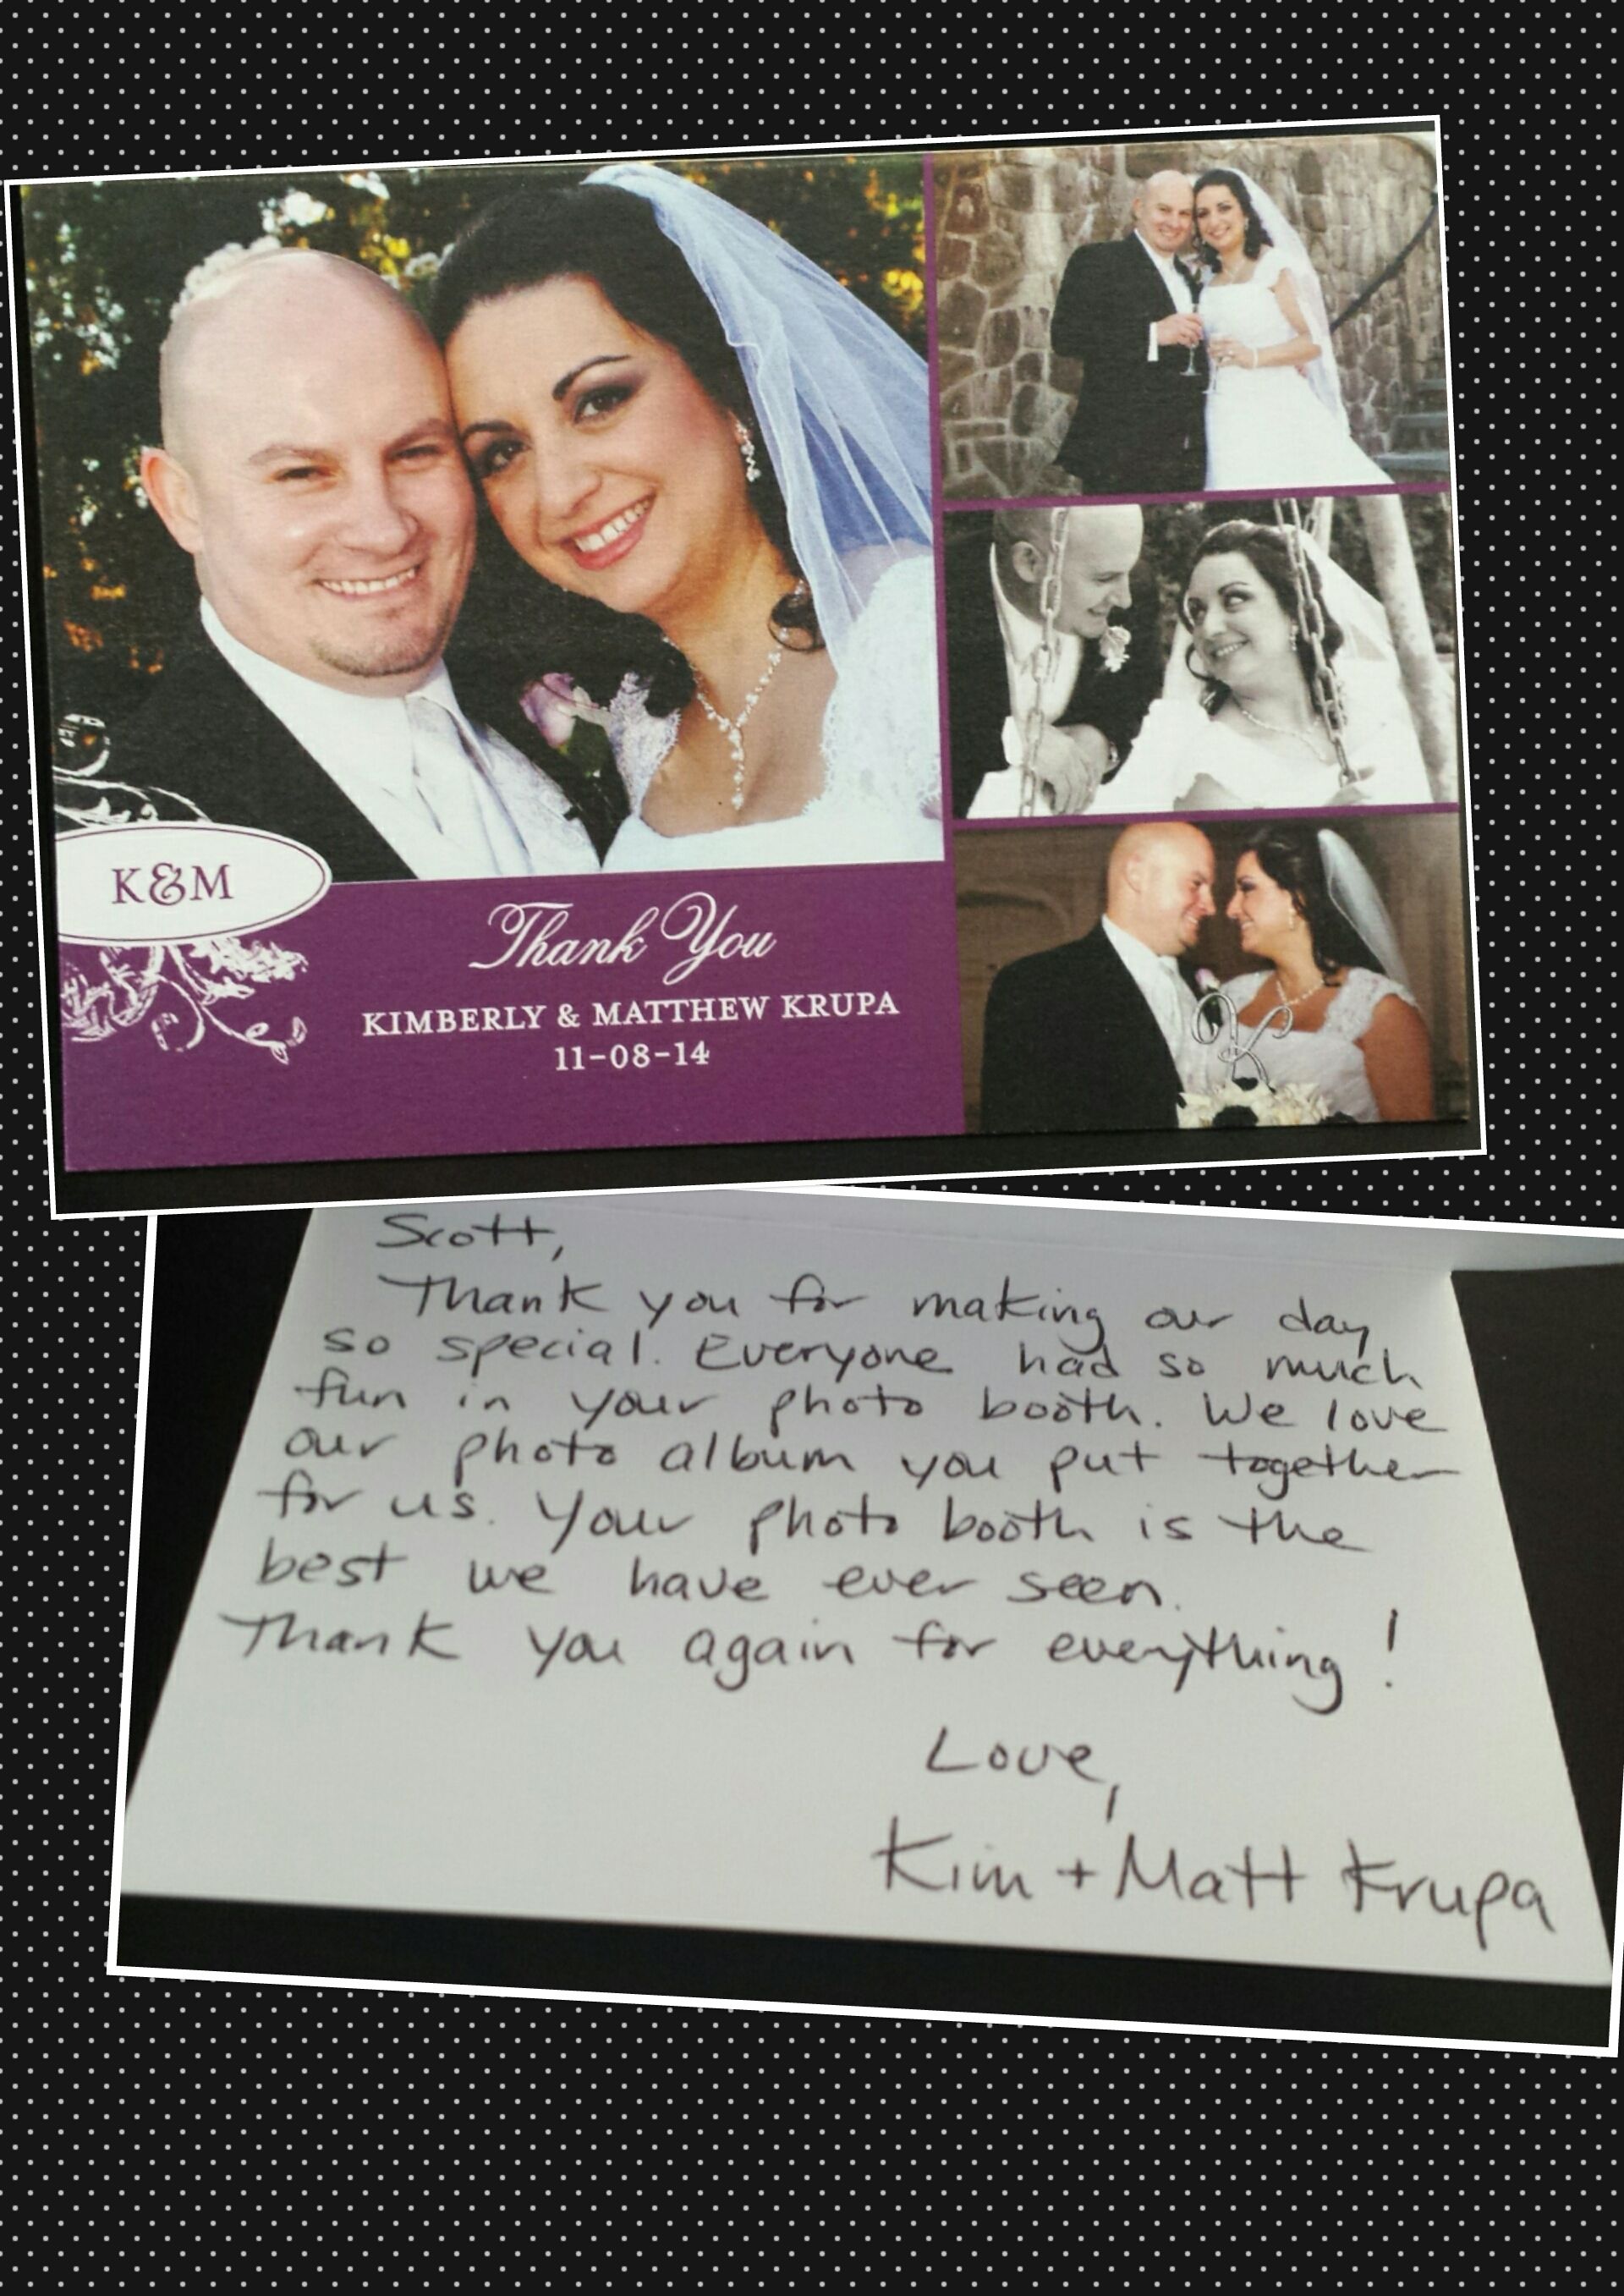 K&M
Thank You
KIMBERLY & MATTHEW KRUPA
11-08-14
K
Scott,
Thank you for making our day
so special. Everyone had so much
fun in your photo booth. We love
our photo album you put together
for us. Your photo booth is the
best we have ever seen.
Thank you again for everything!
Love,
Kim + Matt Krupa